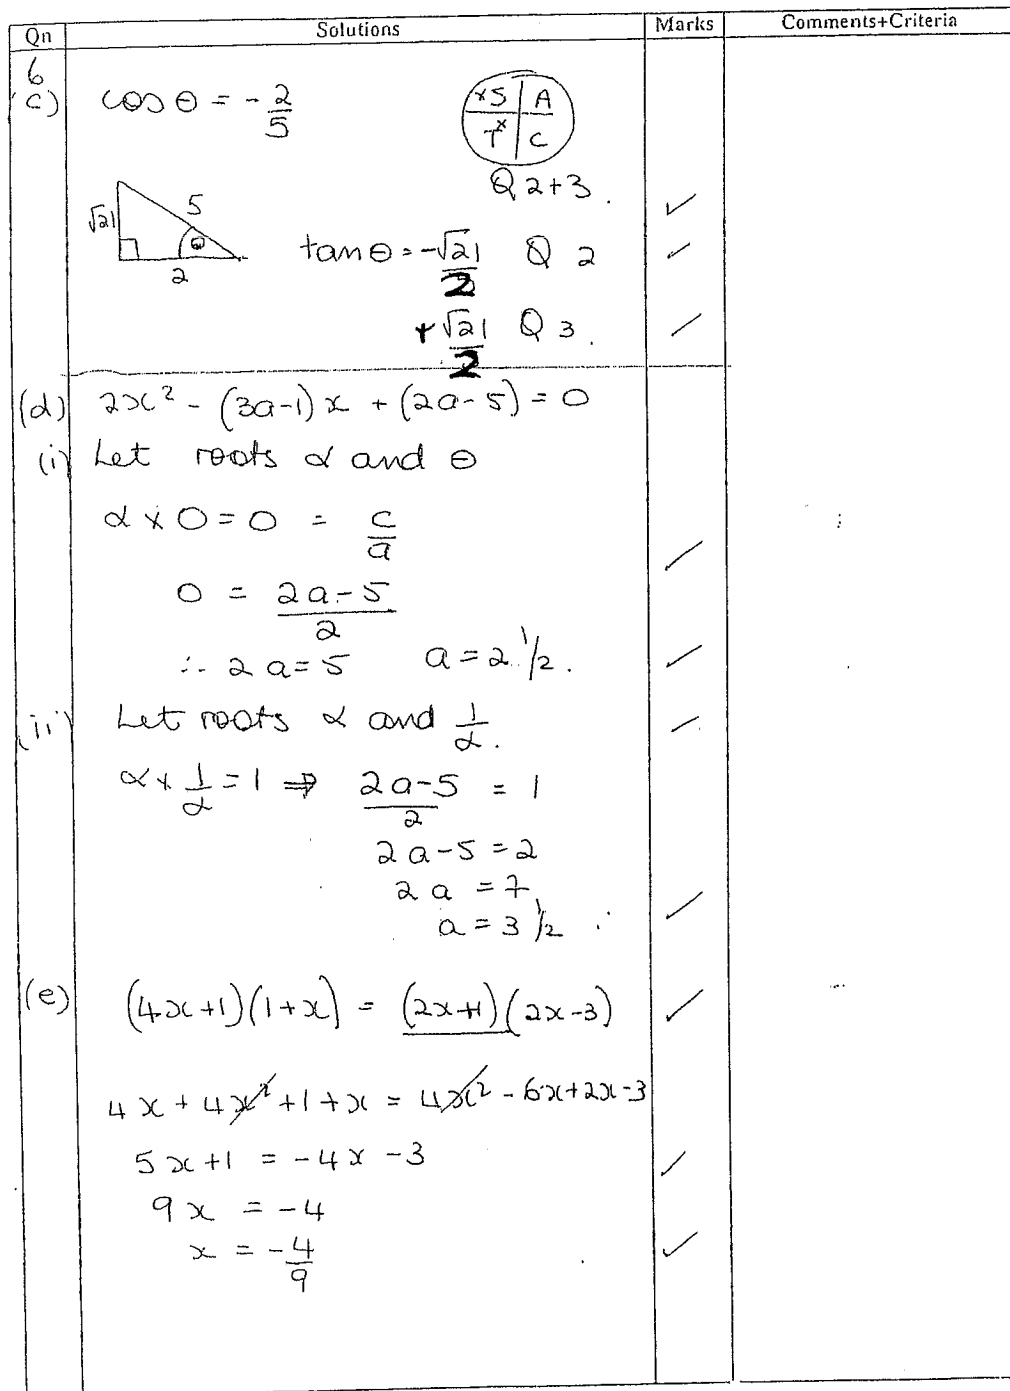 Qn Solutions Marks Comments+Criteria
6
(c) cos θ = -2/5
×S A
T× C
Q 2+3. ✓
√21 5 θ 2
tan θ = -√21/2 Q 2 ✓
+√21/2 Q 3. ✓
(d) 2x² - (3a-1)x + (2a-5) = 0
(i) Let roots α and θ
α × 0 = 0 = c/a ✓
0 = 2a-5/2
∴ 2a=5 a = 2 1/2. ✓
(ii) Let roots α and 1/α. ✓
α × 1/α = 1 ⇒ 2a-5/2 = 1
2a-5 = 2
2a = 7
a = 3 1/2 ✓
(e) (4x+1)(1+x) = (2x+1)(2x-3) ✓
4x + 4x² + 1 + x = 4x² - 6x+2x-3
5x+1 = -4x -3 ✓
9x = -4
x = -4/9 ✓